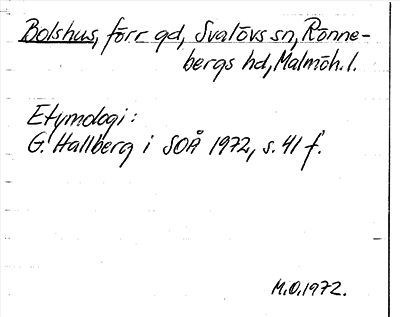 Bolshus, förr gd, Svalövs sn, Rönne-
bergs hd, Malmöh. l.
Etymologi:
G. Hallberg i SOÅ 1972, s. 41 f.
M.O. 1972.